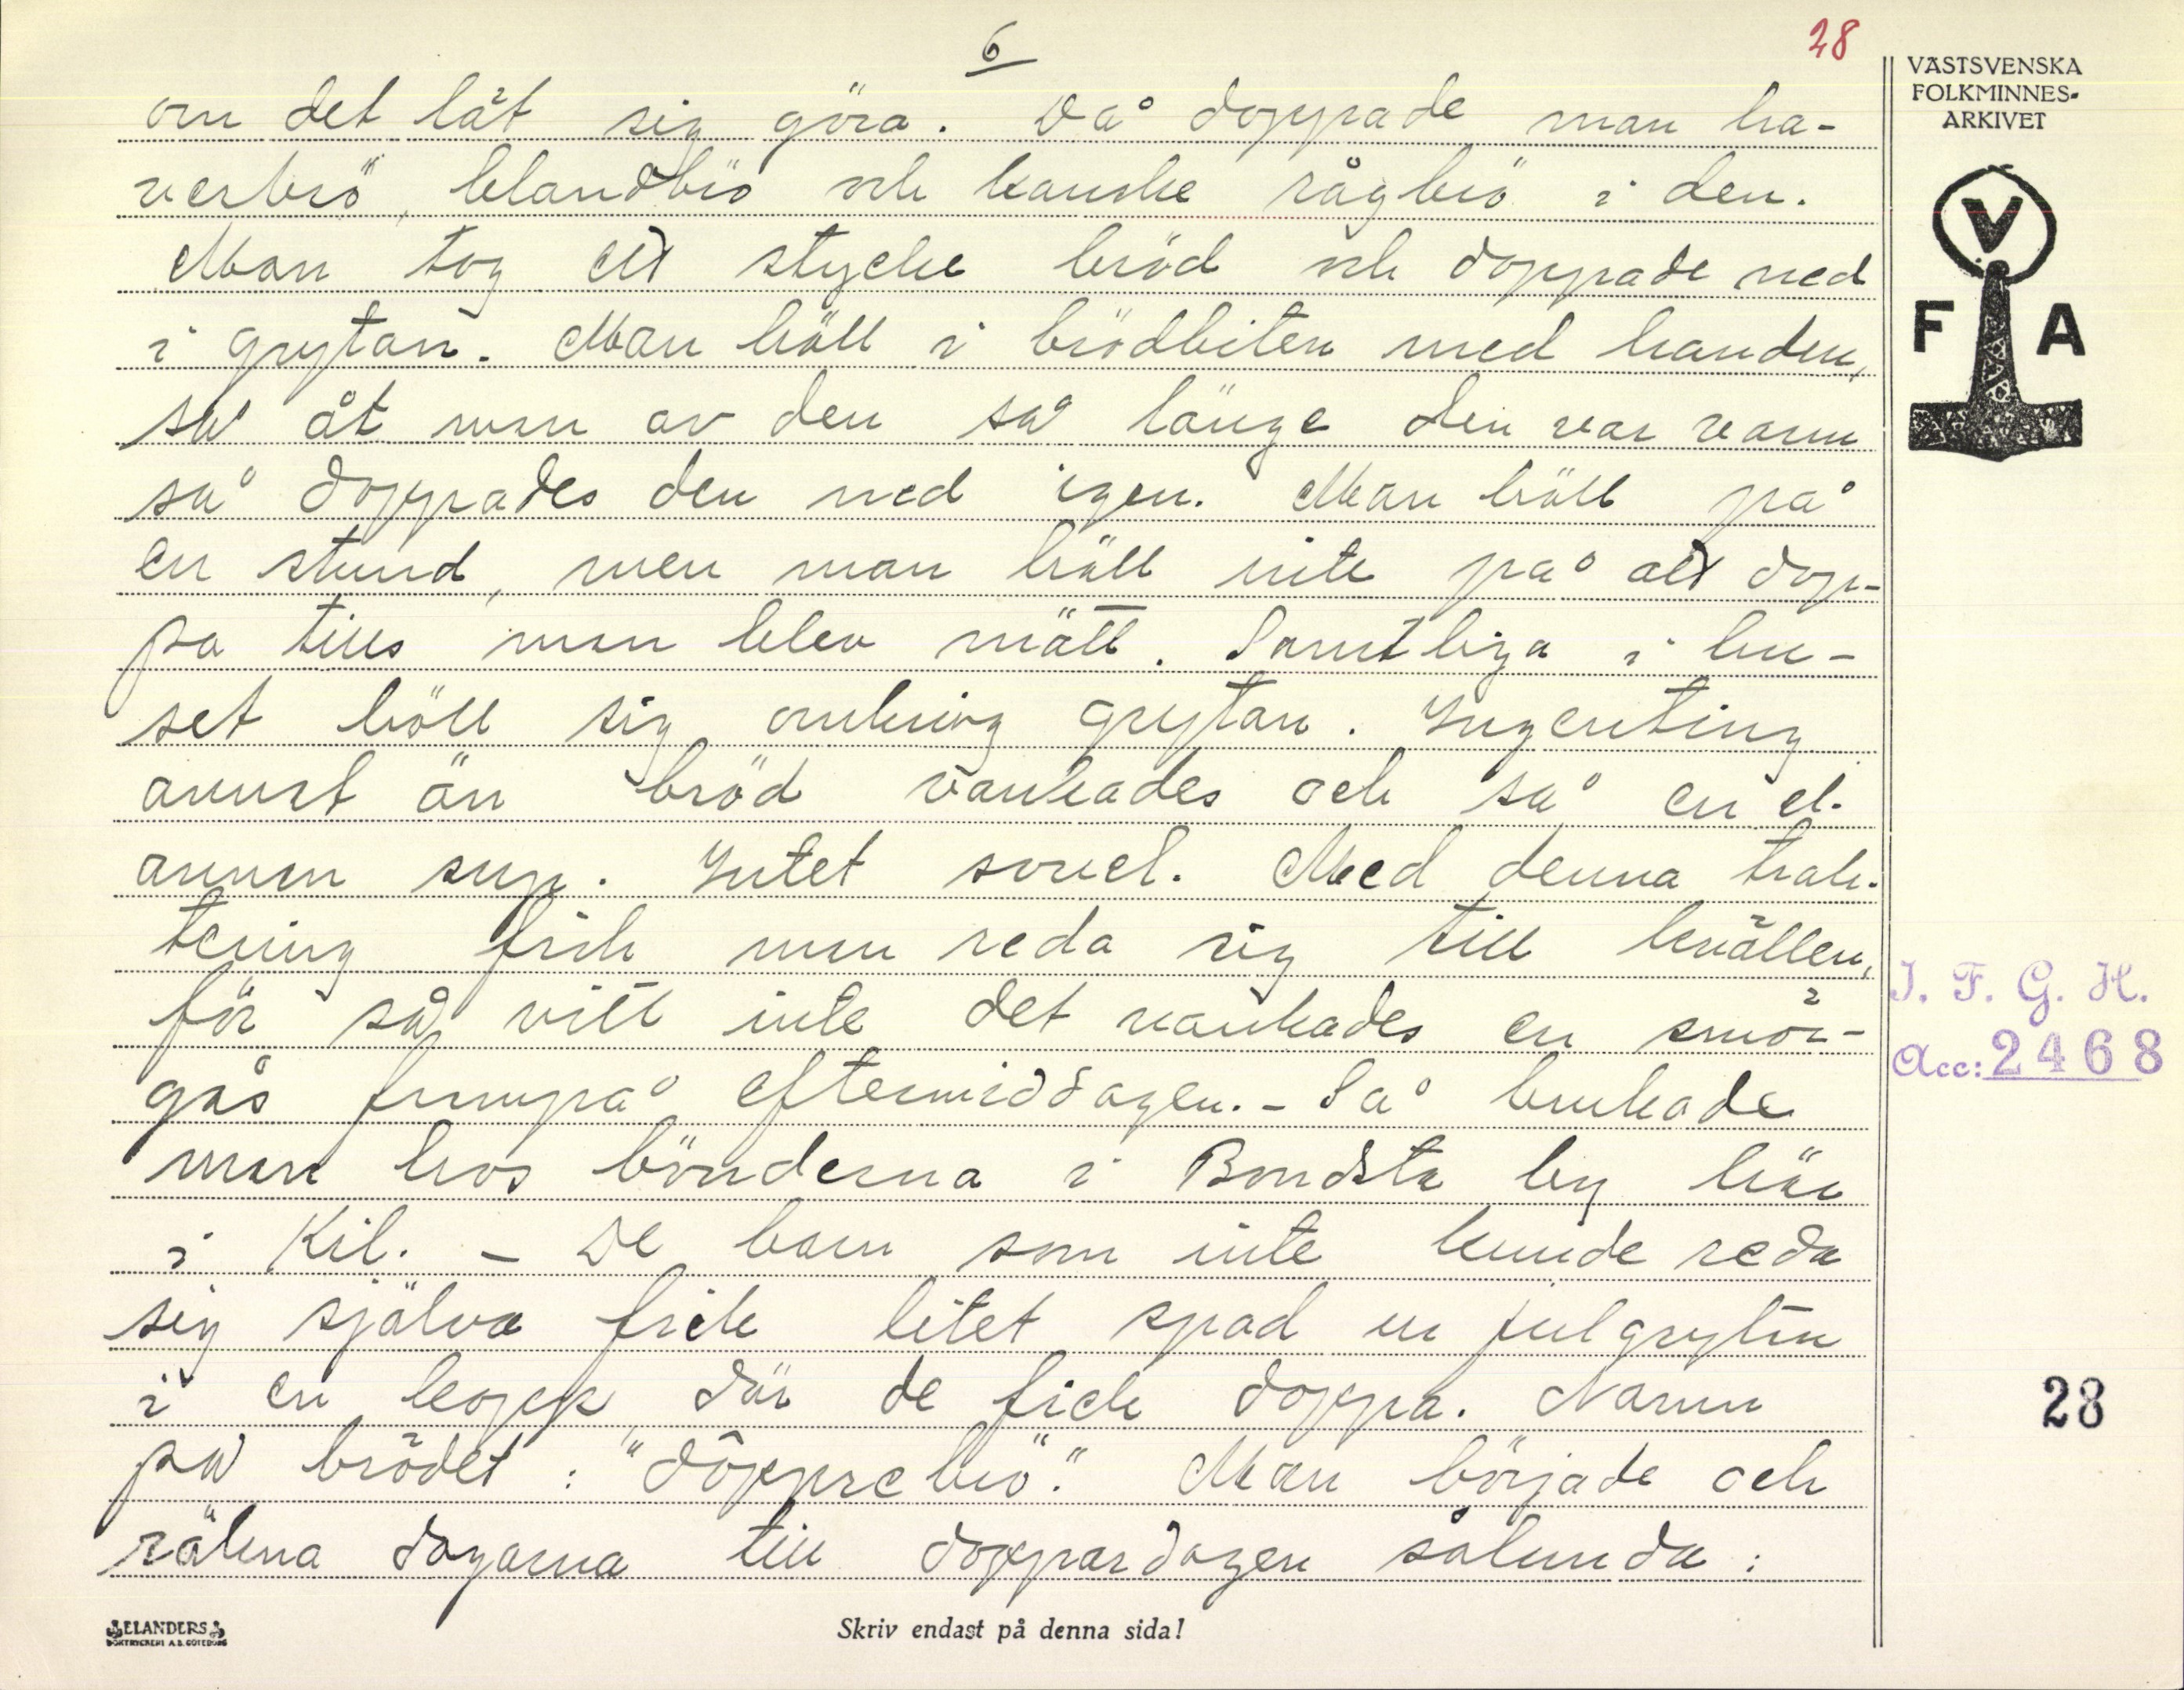 6
28
om det låt sig göra. Då doppade man ha-
verbrö, blandbrö och kanske rågbrö i den.
Man tog ett stycke bröd och doppade ned
i grytan. Man höll i brödbiten med handen,
så åt man av den så länge den var varm
så doppades den ned igen. Man höll på
en stund, men man höll inte på att dop-
pa tills man blev mätt. Samtliga i hu-
set höll sig omkring grytan. Ingenting
annat än bröd vankades och så en el.
annan sup. Intet sovel. Med denna trak-
tering fick man reda sig till kvällen,
för så vitt inte det vankades en smör-
gås frampå eftermiddagen. - Så brukade
man hos bönderna i Bondsta by här
i Kil. - De barn som inte kunde reda
sig själva fick litet spad ur julgrytan
i en kopp där de fick doppa. Namn
på brödet: "dôpparebrö". Man började och
räkna dagarna till doppardagen sålunda:
VÄSTSVENSKA
FOLKMINNES-
ARKIVET
V
F A
I. F. G. H.
Acc: 2468
28
ELANDERS
BOKTRYCKERI A.B. GÖTEBORG
Skriv endast på denna sida!